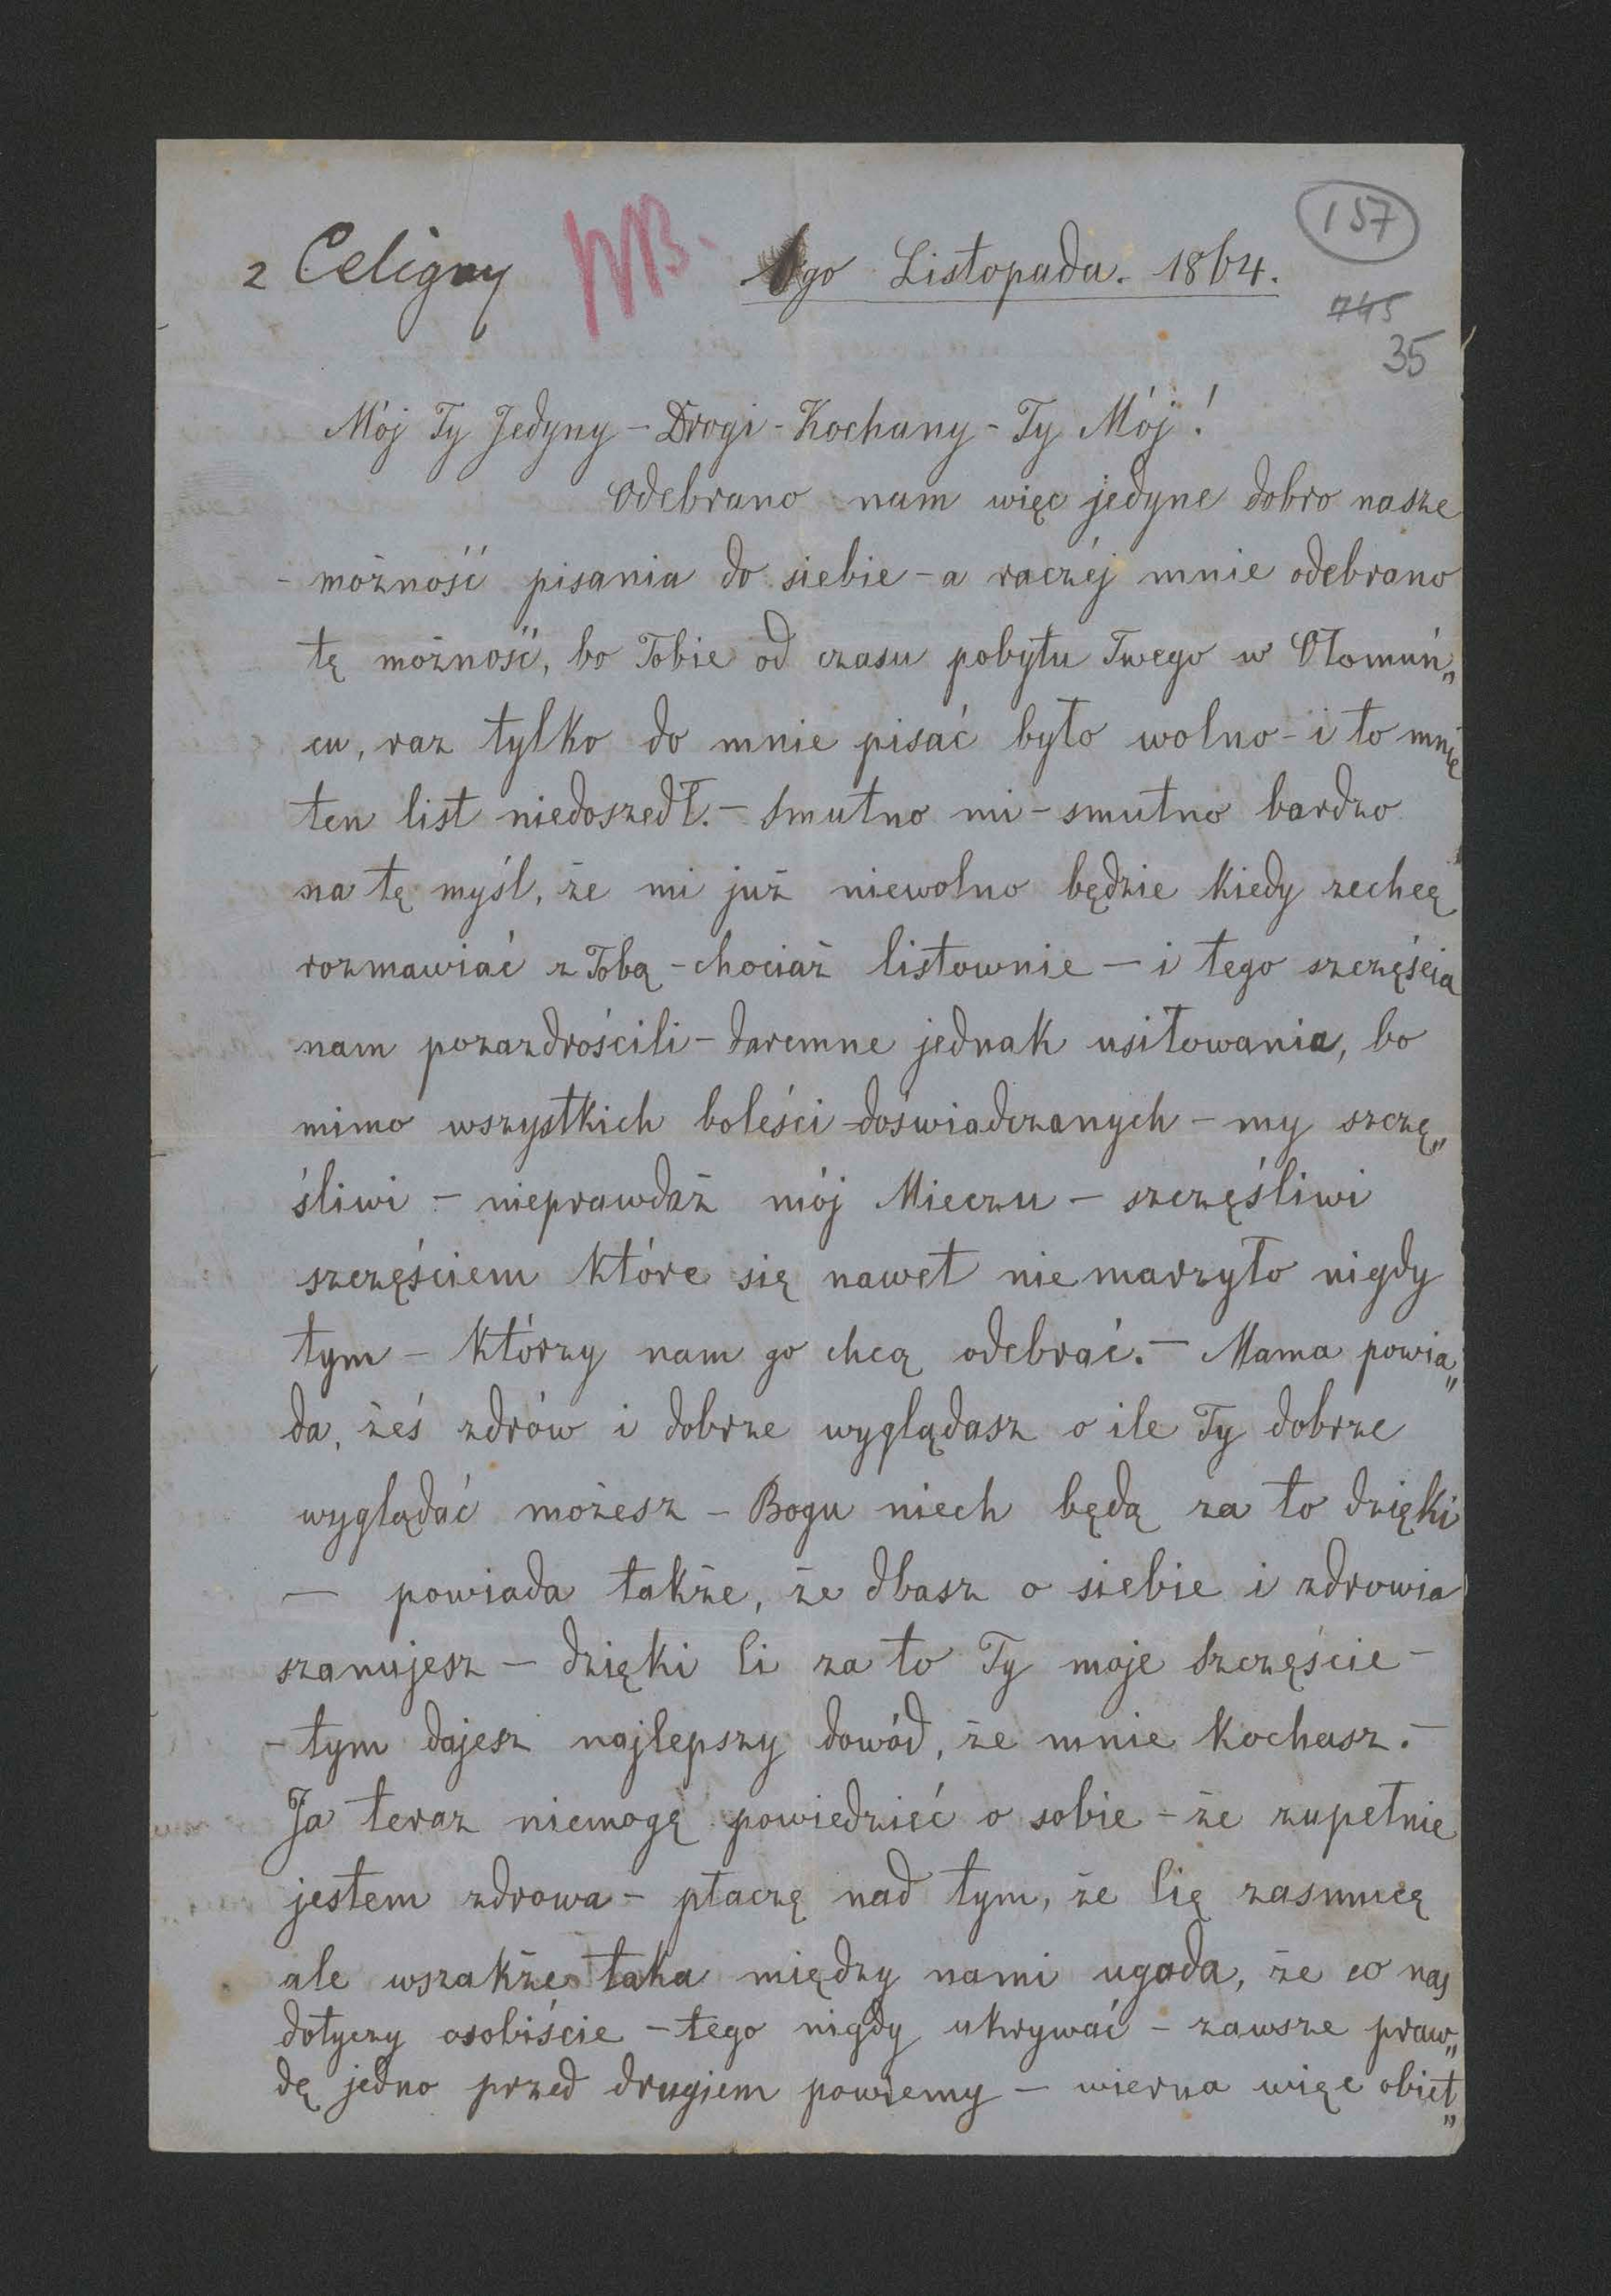 z Celigny NB. 6go Listopada. 1864.
157
745
35
Mój Ty Jedyny - Drogi - Kochany - Ty Mój!
Odebrano nam więc jedyne dobro nasze
- możność pisania do siebie - a raczéj mnie odebrano
tę możność, bo Tobie od czasu pobytu Twego w Ołomuń„
cu, raz tylko do mnie pisać było wolno - i to mnie
ten list niedoszedł. - Smutno mi - smutno bardzo
na tę myśl, że mi już niewolno będzie kiedy zechcę
rozmawiać z Tobą - chociaż listownie - i tego szczęścia
nam pozazdrościli - daremne jednak usiłowania, bo
mimo wszystkich boleści doświadczanych - my szczę„
śliwi - nieprawdaż mój Mieczu - szczęśliwi
szczęściem które się nawet niemarzyło nigdy
tym - którzy nam go chcą odebrać. - Mama powia„
da, żeś zdrów i dobrze wyglądasz o ile Ty dobrze
wyglądać możesz - Bogu niech będą za to dzięki
- powiada także, że dbasz o siebie i zdrowia
szanujesz - dzięki Ci za to Ty moje Szczęście -
- tym dajesz najlepszy dowód, że mnie kochasz. -
Ja teraz niemogę powiedzieć o sobie - że zupełnie
jestem zdrowa - płaczę nad tym, że Cię zasmucę
ale wszakże taka między nami ugoda, że co nas
dotyczy osobiście - tego nigdy ukrywać - zawsze praw„
dę jedno przed drugiem powiemy - wierna więc obiet„